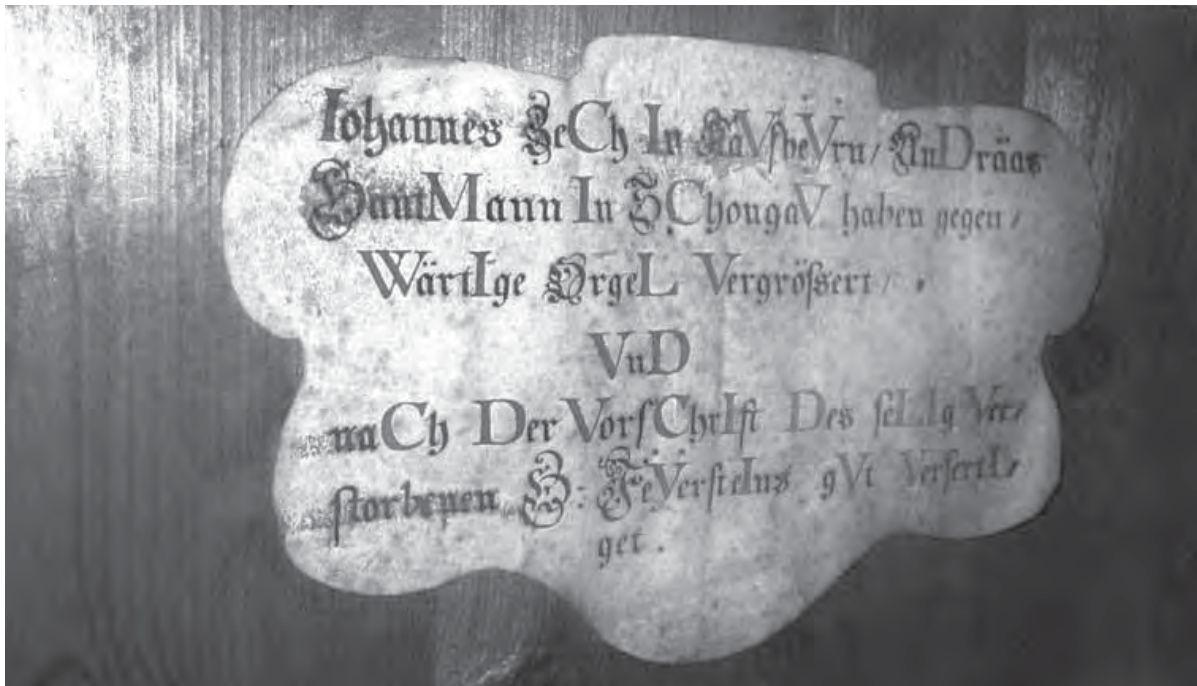 Iohannes ZeCh In KaVfbeVrn / AnDräas
HantMann In SChongaV haben gegen /
WärtIge OrgeL Vergröſsert /
VnD
naCh Der VorſChrIft Des ſeLIg Ver /
ſtorbenen H : FeVerſteIns gVt VerfertI /
get .